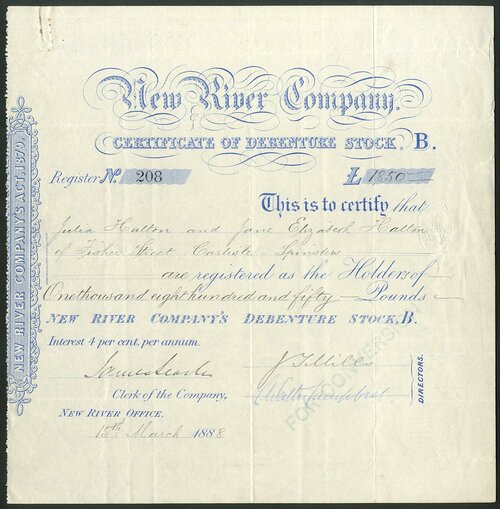 New River Company.
CERTIFICATE OF DEBENTURE STOCK, B.
Register No. 208 £1850
This is to certify that
Julia Halton and Jane Elizabeth Halton
of Fisher Street Carlisle Spinsters
are registered as the Holders of
One thousand eight hundred and fifty Pounds
NEW RIVER COMPANY'S DEBENTURE STOCK, B.
Interest 4 per cent. per annum.
James Searle
J Mills
Clerk of the Company,
DIRECTORS.
NEW RIVER OFFICE,
15th March 1888
NEW RIVER COMPANY'S ACT, 1879.